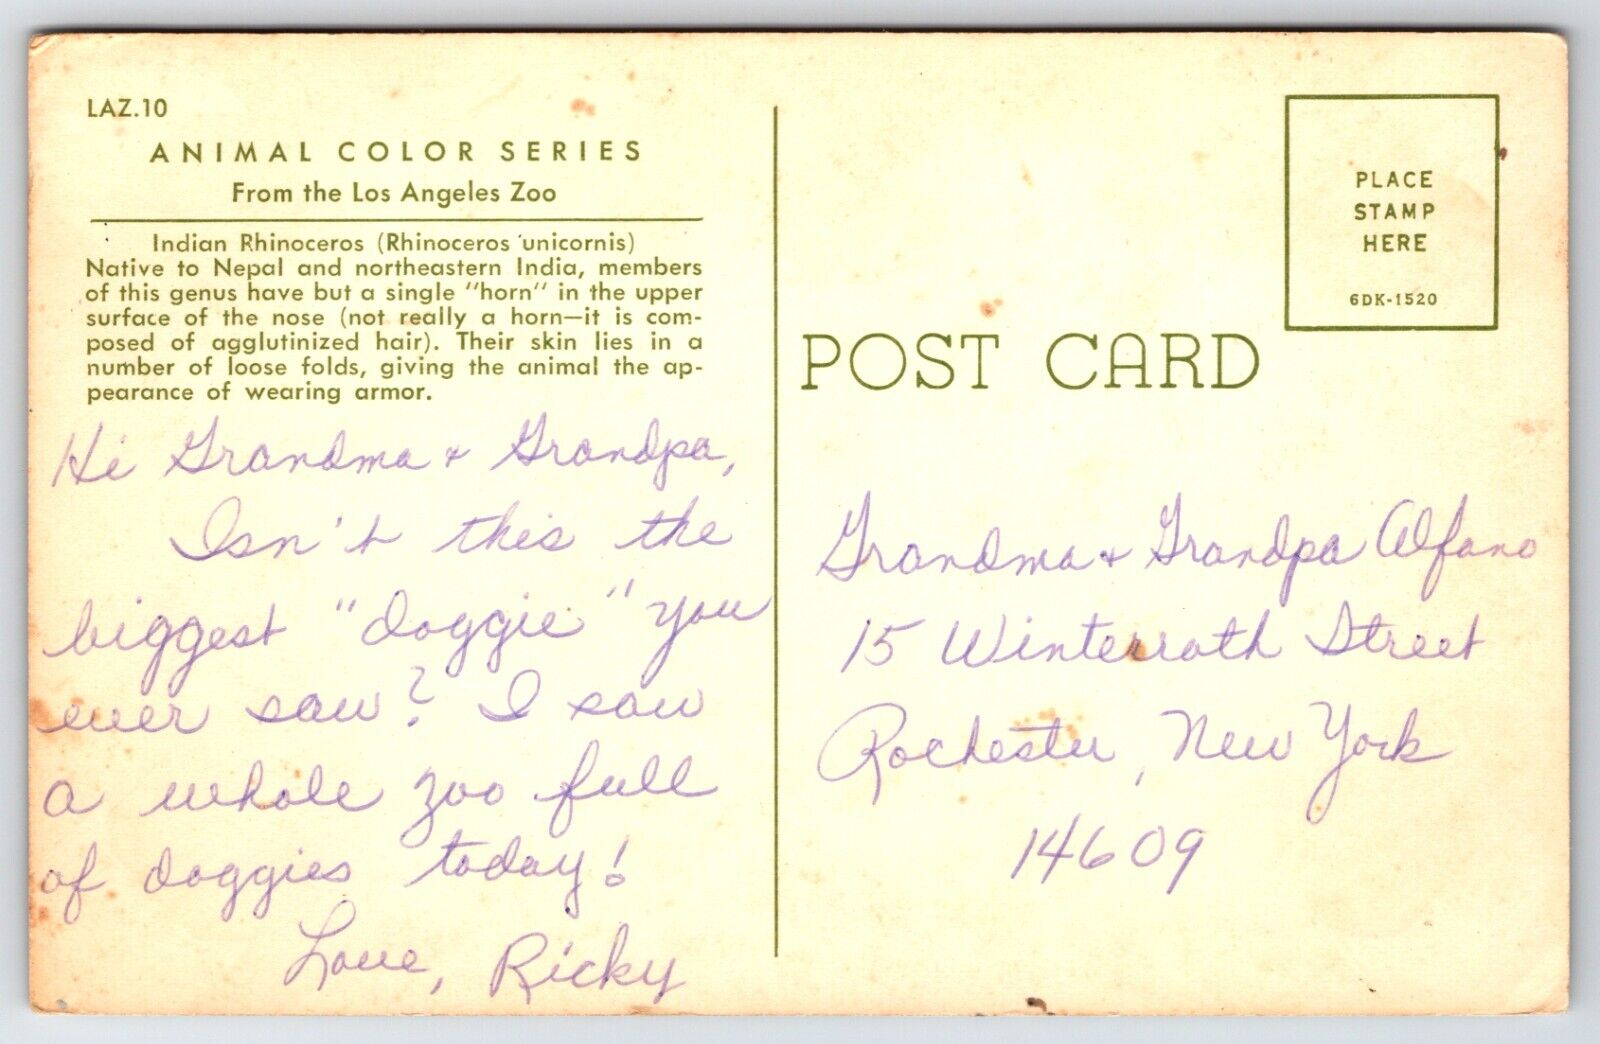 LAZ.10
ANIMAL COLOR SERIES
From the Los Angeles Zoo
Indian Rhinoceros (Rhinoceros unicornis)
Native to Nepal and northeastern India, members
of this genus have but a single "horn" in the upper
surface of the nose (not really a horn—it is com-
posed of agglutinized hair). Their skin lies in a
number of loose folds, giving the animal the ap-
pearance of wearing armor.
Hi Grandma + Grandpa,
Isn't this the
biggest "doggie" you
ever saw? I saw
a whole zoo full
of doggies today!
Love, Ricky
PLACE
STAMP
HERE
6DK-1520
POST CARD
Grandma + Grandpa Alfano
15 Winterroth Street
Rochester, New York
14609